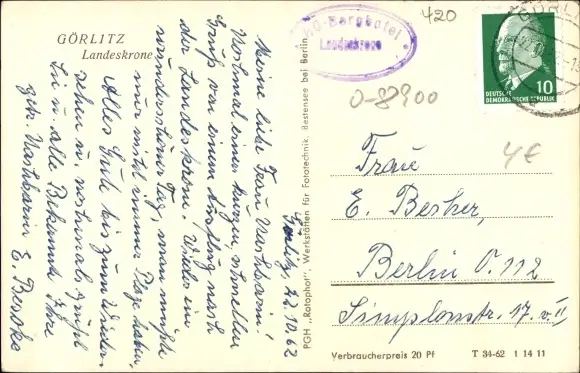 GÖRLITZ
Landeskrone
Görlitz 22.10.62
Meine liebe Frau Nachbarin!
Nochmal einen kurzen, schnellen
Gruß von einem Ausflug nach
der Landeskrone. Wieder ein
wunderschöner Tag, man müßte
nur nicht immer Plage haben,
Alles Gute bis zum Wieder-
sehen u. nochmals Grüße
Sie u. alle Bekannte Ihre
gek. Nachbarin E.
HO-Berghotel
Landeskrone
420
GÖRLITZ
DEUTSCHE
DEMOKRATISCHE REPUBLIK
10
O-8900
4€
Frau
E. Becker,
Berlin O. 112
Simplonstr. 17. v. II
PGH „Rotophot", Werkstätten für Fototechnik, Bestensee bei Berlin
Verbraucherpreis 20 Pf
T 34-62 1 14 11